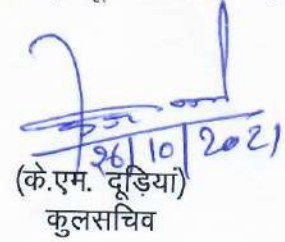 26/10/2021
(के.एम. दूड़िया)
कुलसचिव